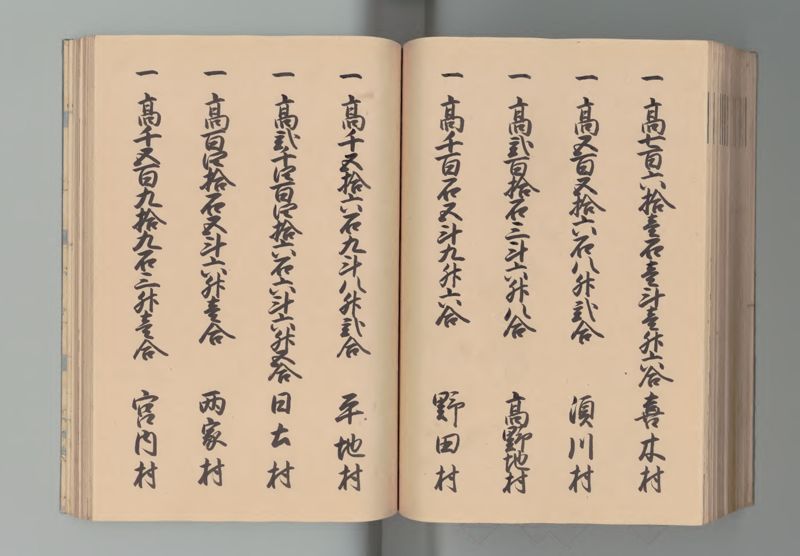 一 高七百六拾壹石壹斗壹升六合 喜木村
一 高五百五拾六石八升貳合 須川村
一 高貳百拾石三斗六升八合 高野地村
一 高千百石五斗九升六合 野田村
一 高千五拾六石九斗八升貳合 平地村
一 高貳千四百四拾六石六斗六升五合 日土村
一 高百四拾石五斗六升壹合 両家村
一 高千五百九拾九石三升壹合 宮内村